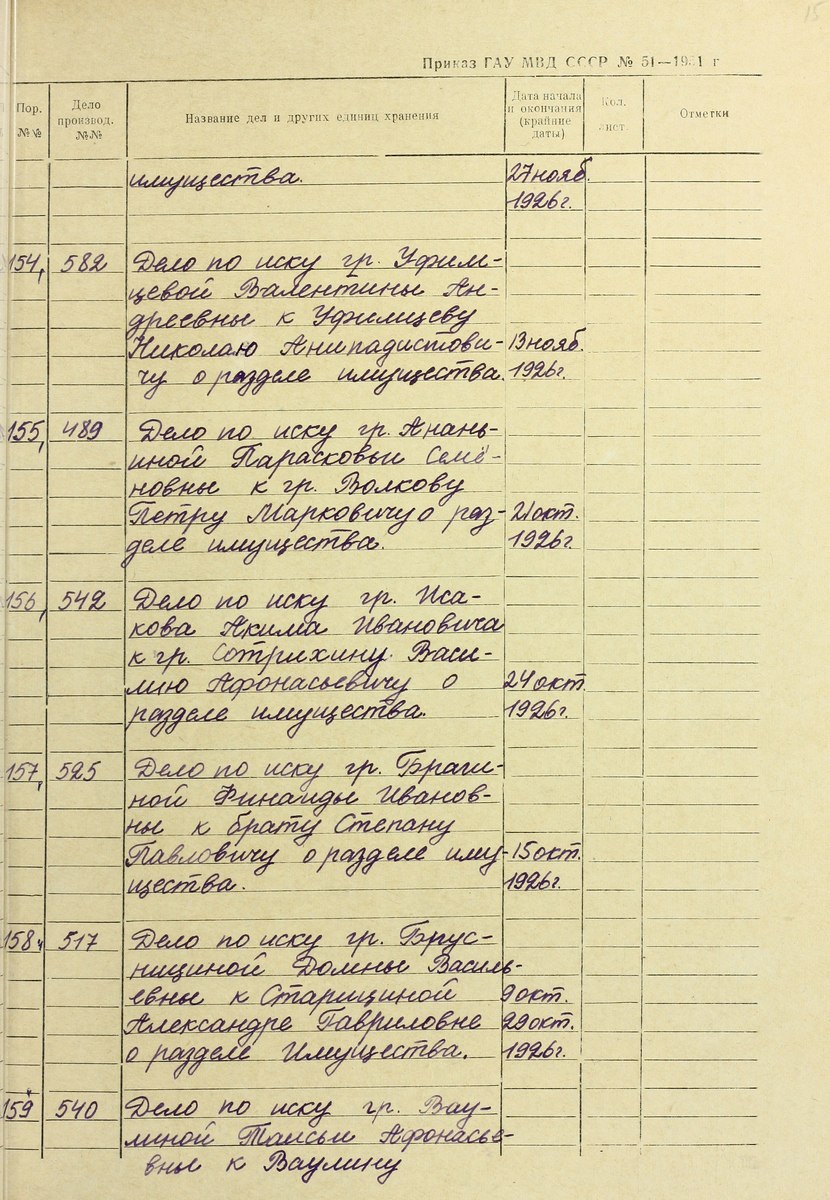 15
Приказ ГАУ МВД СССР № 51—1951 г
Пор. №№
Дело производ. №№
Название дел и других единиц хранения
Дата начала и окончания (крайние даты)
Кол. лист.
Отметки
имущества. 27 нояб.
1926г.
154, 582 Дело по иску гр. Уфим-
цевой Валентины Ан-
дреевны к Уфимцеву
Николаю Анипадистови- 13 нояб.
чу о разделе имущества. 1926г.
155, 489 Дело по иску гр. Анань-
иной Парасковьи Семё-
новны к гр. Волкову
Петру Марковичу о раз- 21 окт.
деле имущества. 1926г.
156, 542 Дело по иску гр. Иса-
кова Акима Ивановича
к гр. Сотрихину Васи-
лию Афонасьевичу о 24 окт.
разделе имущества. 1926г.
157, 525 Дело по иску гр. Браги-
ной Финаиды Иванов-
ны к брату Степану
Павловичу о разделе иму- 15 окт.
щества. 1926г.
158, 517 Дело по иску гр. Брус-
ницыной Домны Василь-
евны к Старициной 9 окт.
Александре Гавриловне 29 окт.
о разделе Имущества. 1926г.
159 540 Дело по иску гр. Вау-
линой Таисьи Афонасье-
вны к Ваулину